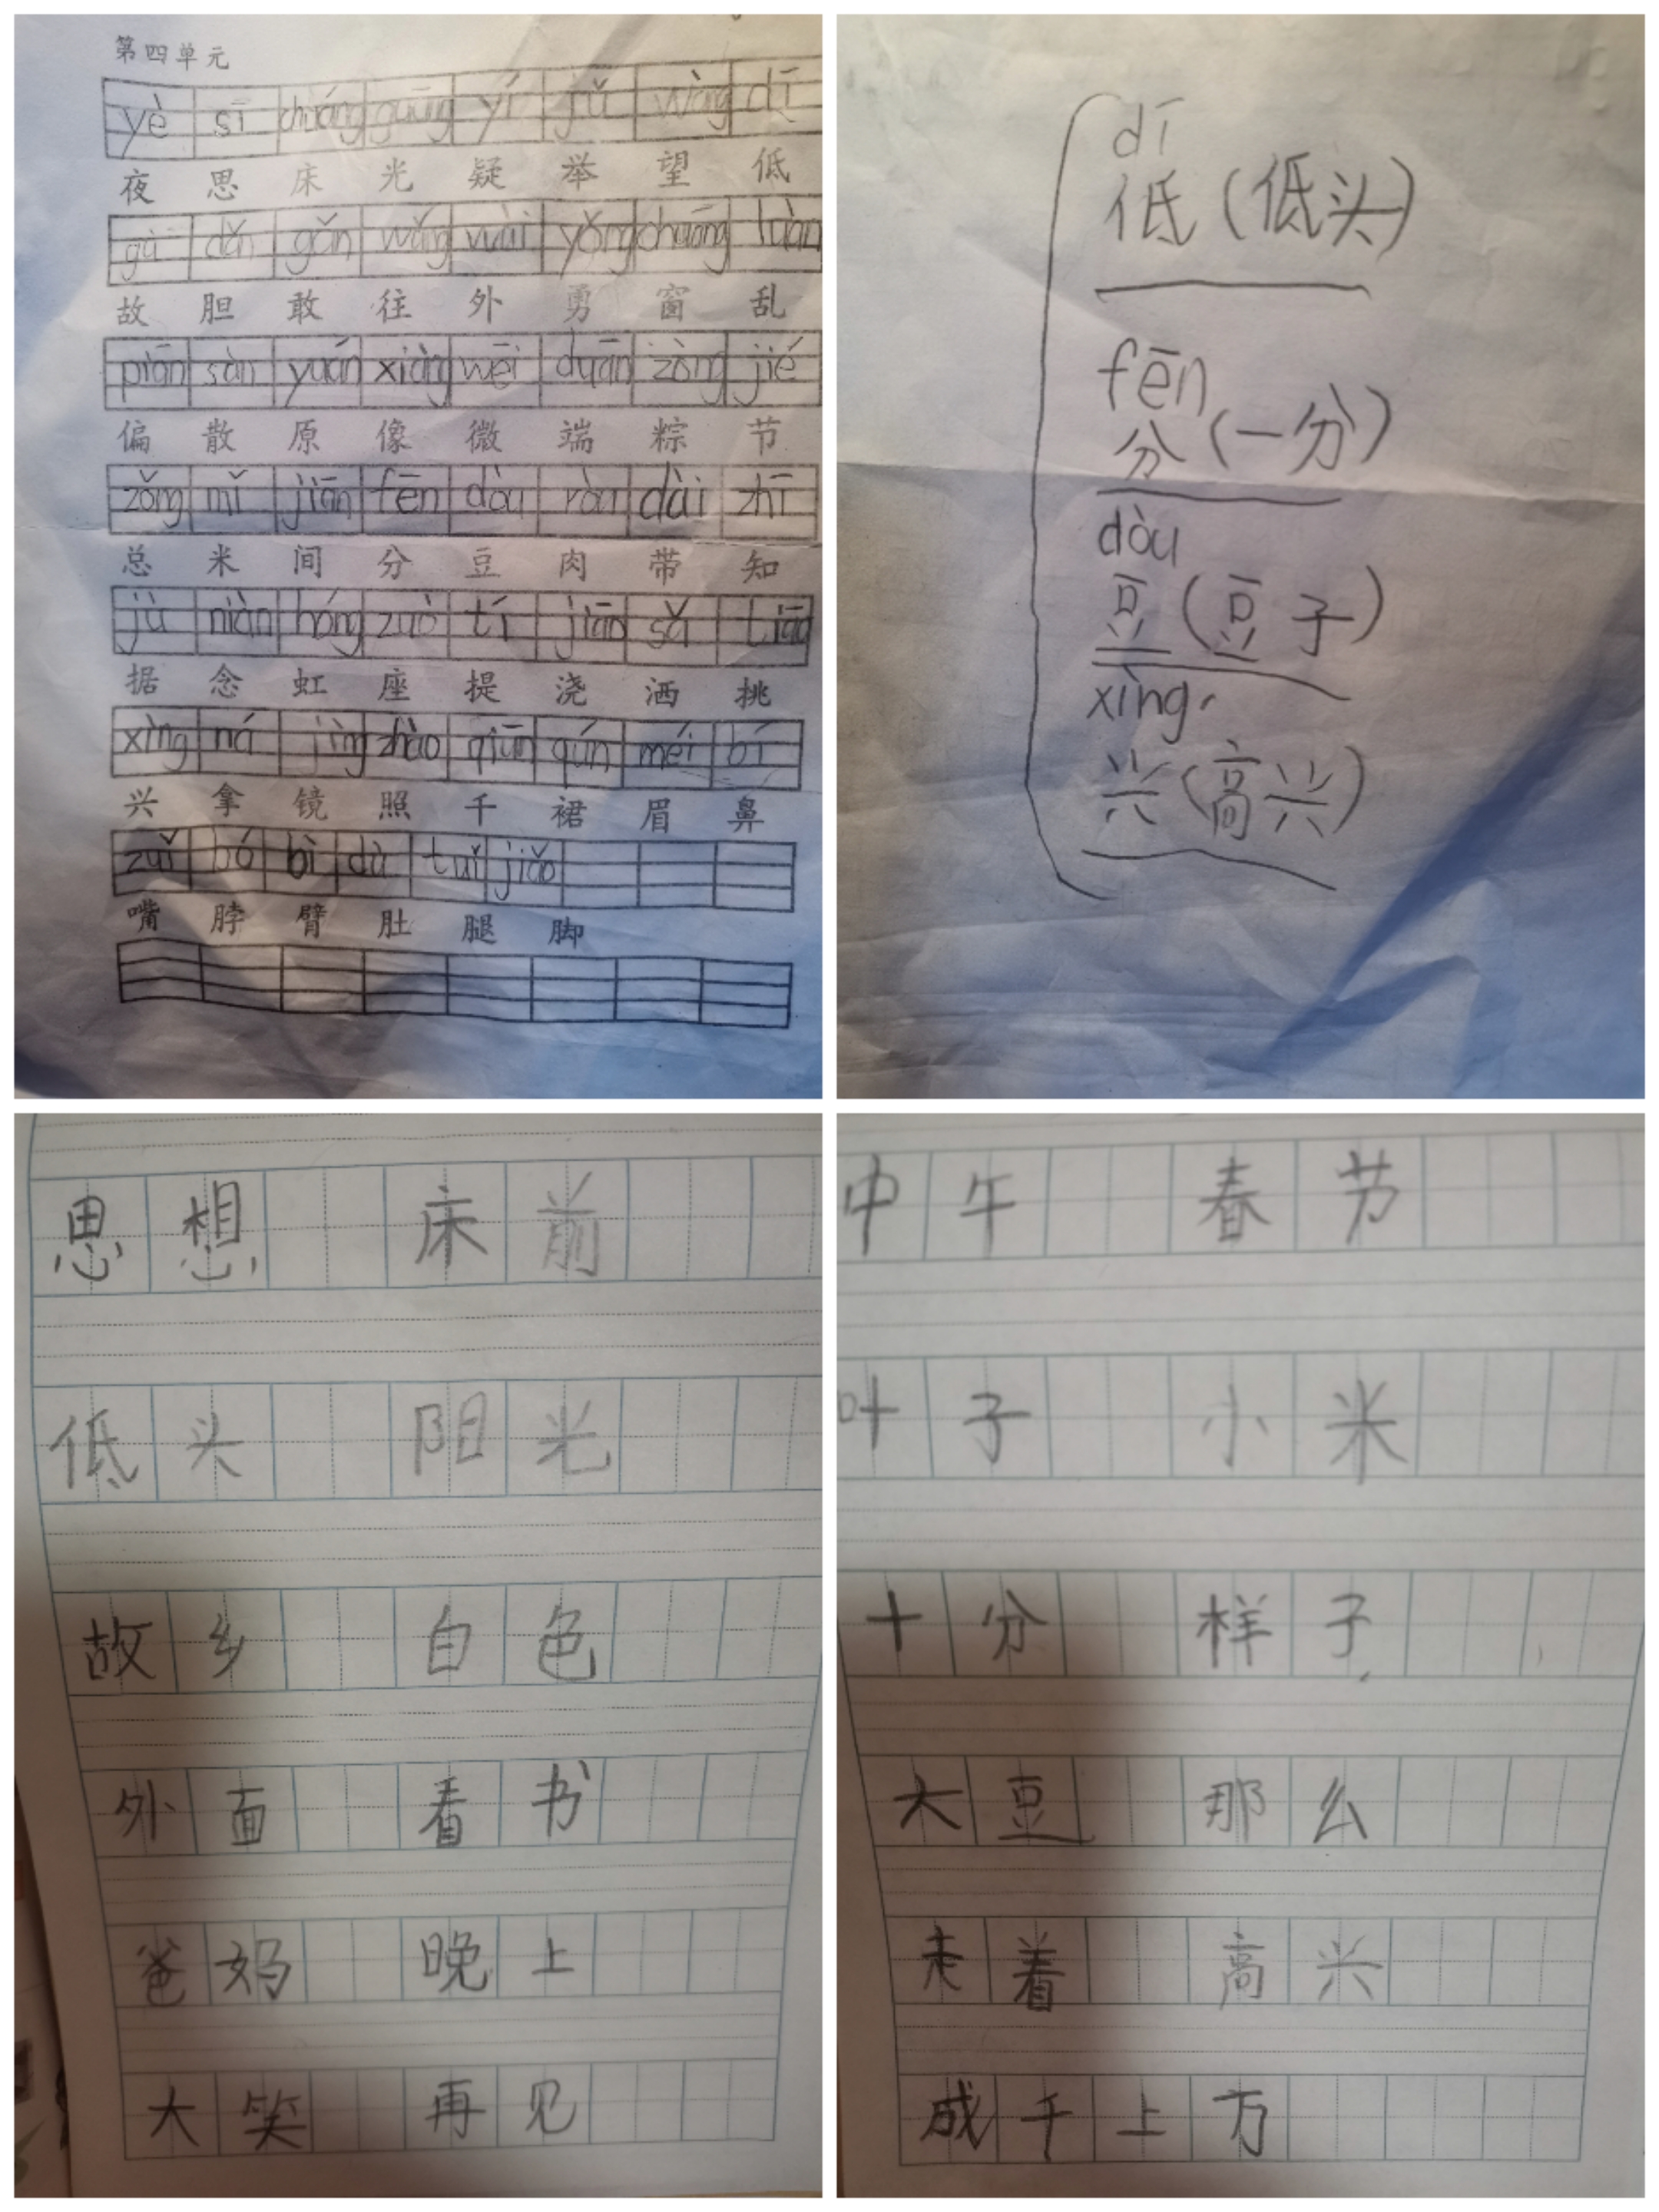 第四单元
yè sī chuáng guāng yí jǔ wàng dī
夜 思 床 光 疑 举 望 低
gù dǎn gǎn wǎng wài yǒng chuāng luàn
故 胆 敢 往 外 勇 窗 乱
piān sàn yuán xiàng wēi duān zòng jié
偏 散 原 像 微 端 粽 节
zǒng mǐ jiān fēn dòu ròu dài zhī
总 米 间 分 豆 肉 带 知
jù niàn hóng zuò tí jiāo sǎ tiāo
据 念 虹 座 提 浇 洒 挑
xìng ná jìng zhào qiān qún méi bí
兴 拿 镜 照 千 裙 眉 鼻
zuǐ bó bì dù tuǐ jiǎo
嘴 脖 臂 肚 腿 脚
dī
低(低头)
fēn
分(一分)
dòu
豆(豆子)
xìng
兴(高兴)
思想 床前
低头 阳光
故乡 白色
外面 看书
爸妈 晚上
大笑 再见
中午 春节
叶子 小米
十分 样子
大豆 那么
走着 高兴
成千上万